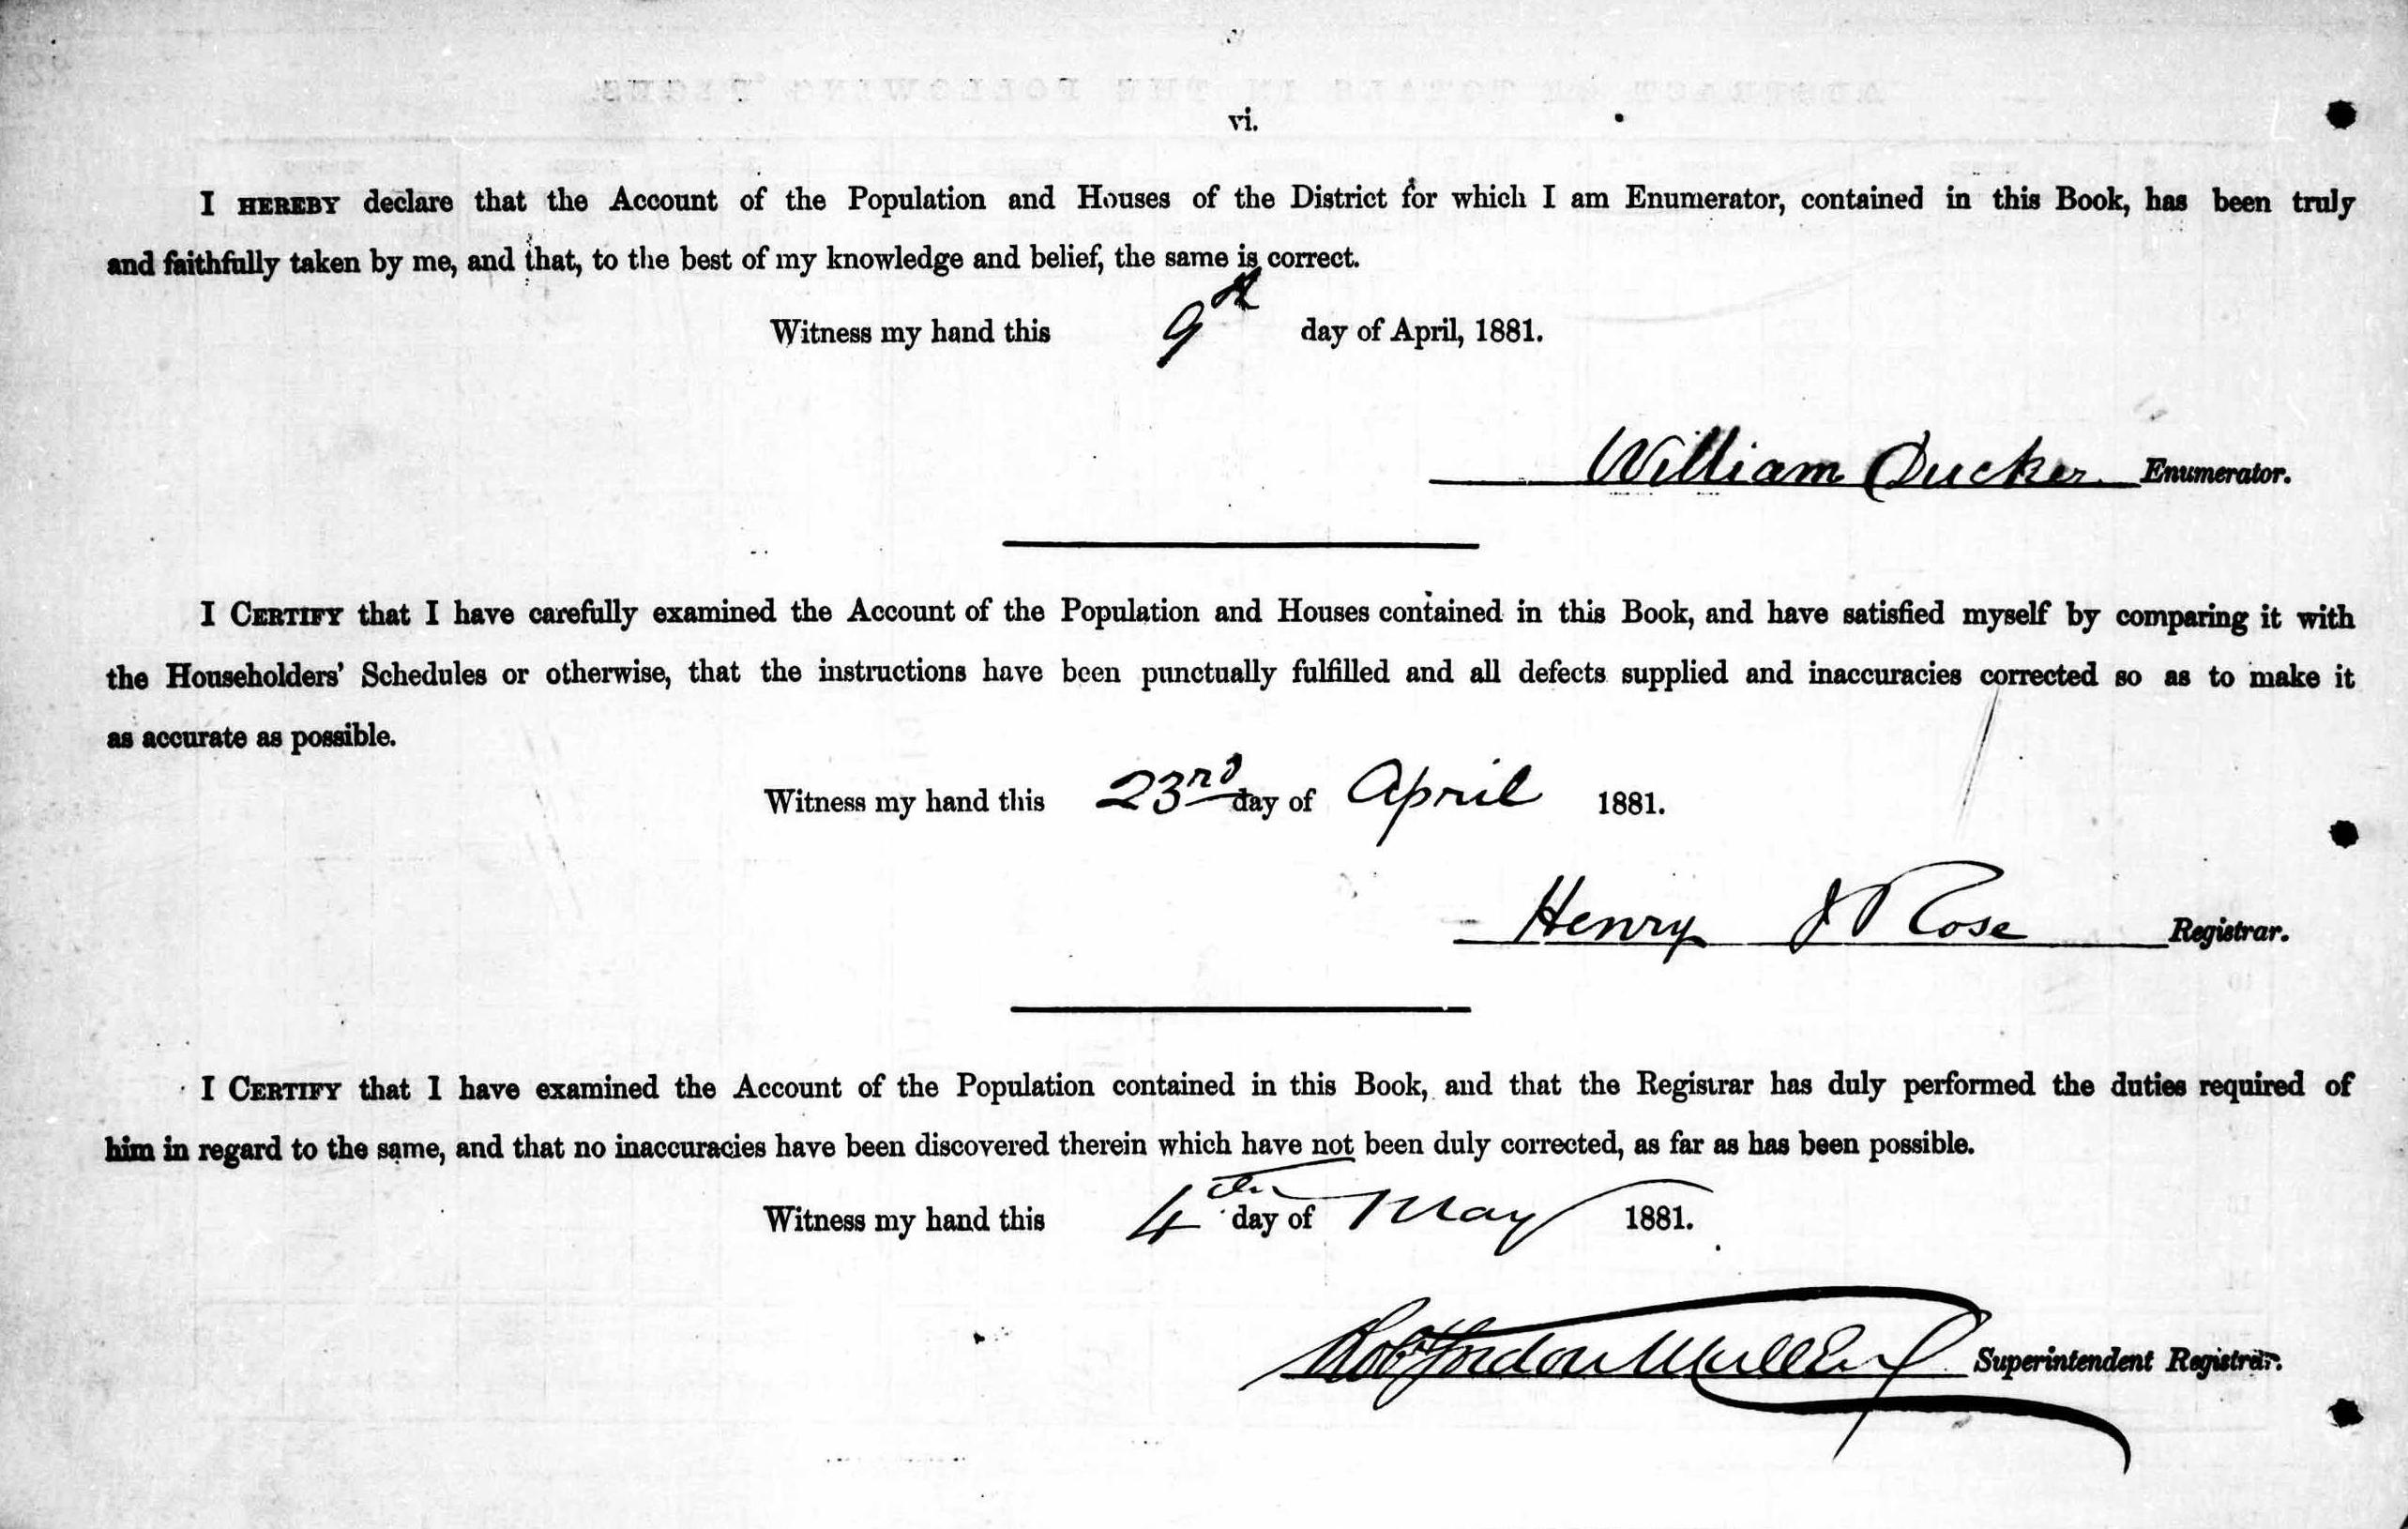 vi.
I HEREBY declare that the Account of the Population and Houses of the District for which I am Enumerator, contained in this Book, has been truly
and faithfully taken by me, and that, to the best of my knowledge and belief, the same is correct.
Witness my hand this 9th day of April, 1881.
William Ducker Enumerator.
I CERTIFY that I have carefully examined the Account of the Population and Houses contained in this Book, and have satisfied myself by comparing it with
the Householders' Schedules or otherwise, that the instructions have been punctually fulfilled and all defects supplied and inaccuracies corrected so as to make it
as accurate as possible.
Witness my hand this 23rd day of April 1881.
Henry J Rose Registrar.
I CERTIFY that I have examined the Account of the Population contained in this Book, and that the Registrar has duly performed the duties required of
him in regard to the same, and that no inaccuracies have been discovered therein which have not been duly corrected, as far as has been possible.
Witness my hand this 4th day of May 1881.
Robt Gordon Superintendent Registrar.